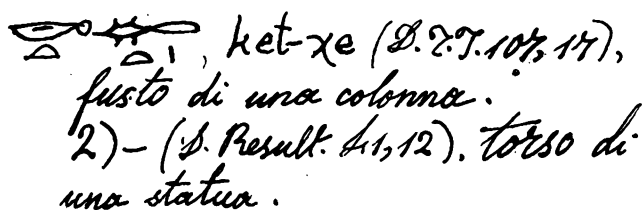 , ket-χe (D.T.J.107,17),
fusto di una colonna.
2)- (D. Result. 41,12), torso di
una statua.